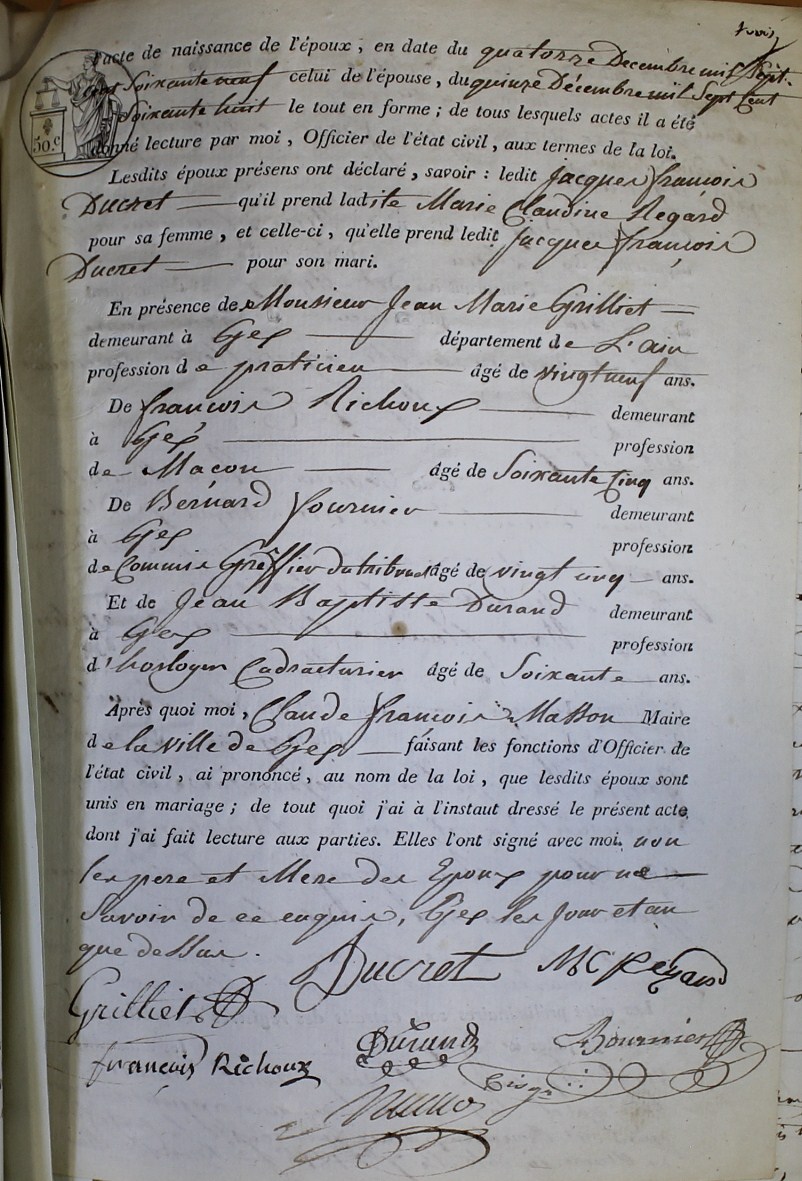 trois
l'acte de naissance de l'époux, en date du quatorze Decembre mil Sept-
cent Soixante neuf celui de l'épouse, du quinze Décembre mil Sept Cent
Soixante huit le tout en forme; de tous lesquels actes il a été
50.c
donné lecture par moi, Officier de l'état civil, aux termes de la loi.
Lesdits époux présens ont déclaré, savoir: ledit Jacques françois
Ducret — qu'il prend ladite Marie Claudine Regard
pour sa femme, et celle-ci, qu'elle prend ledit Jacques françois
Ducret — pour son mari.
En présence de Monsieur Jean Marie Grilliet —
demeurant à Gex — département de L'ain
profession de praticien — âgé de vingt neuf ans.
De françois Richoux — demeurant
à Gex — profession
de Macon — âgé de Soixante Cinq ans.
De Bernard fournier — demeurant
à Gex profession
de Commis Greffier du tribunal âgé de vingt cinq — ans.
Et de Jean Baptiste Durand demeurant
à Gex — profession
d'horloger Cadracturier âgé de Soixante ans.
Après quoi moi, Claude françois Masson Maire
de la ville de Gex — faisant les fonctions d'Officier de
l'état civil, ai prononcé, au nom de la loi, que lesdits époux sont
unis en mariage; de tout quoi j'ai à l'instaut dressé le présent acte,
dont j'ai fait lecture aux parties. Elles l'ont signé avec moi. non
les pere et Mere des Epoux pour ne —
Savoir de ce enquis, Gex les Jour et an
que dessus.
Ducret MC Regard
Grilliet
françois Richoux Durand